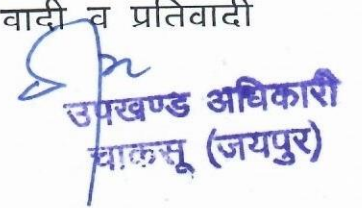 वादी व प्रतिवादी
उपखण्ड अधिकारी
चाकसू (जयपुर)